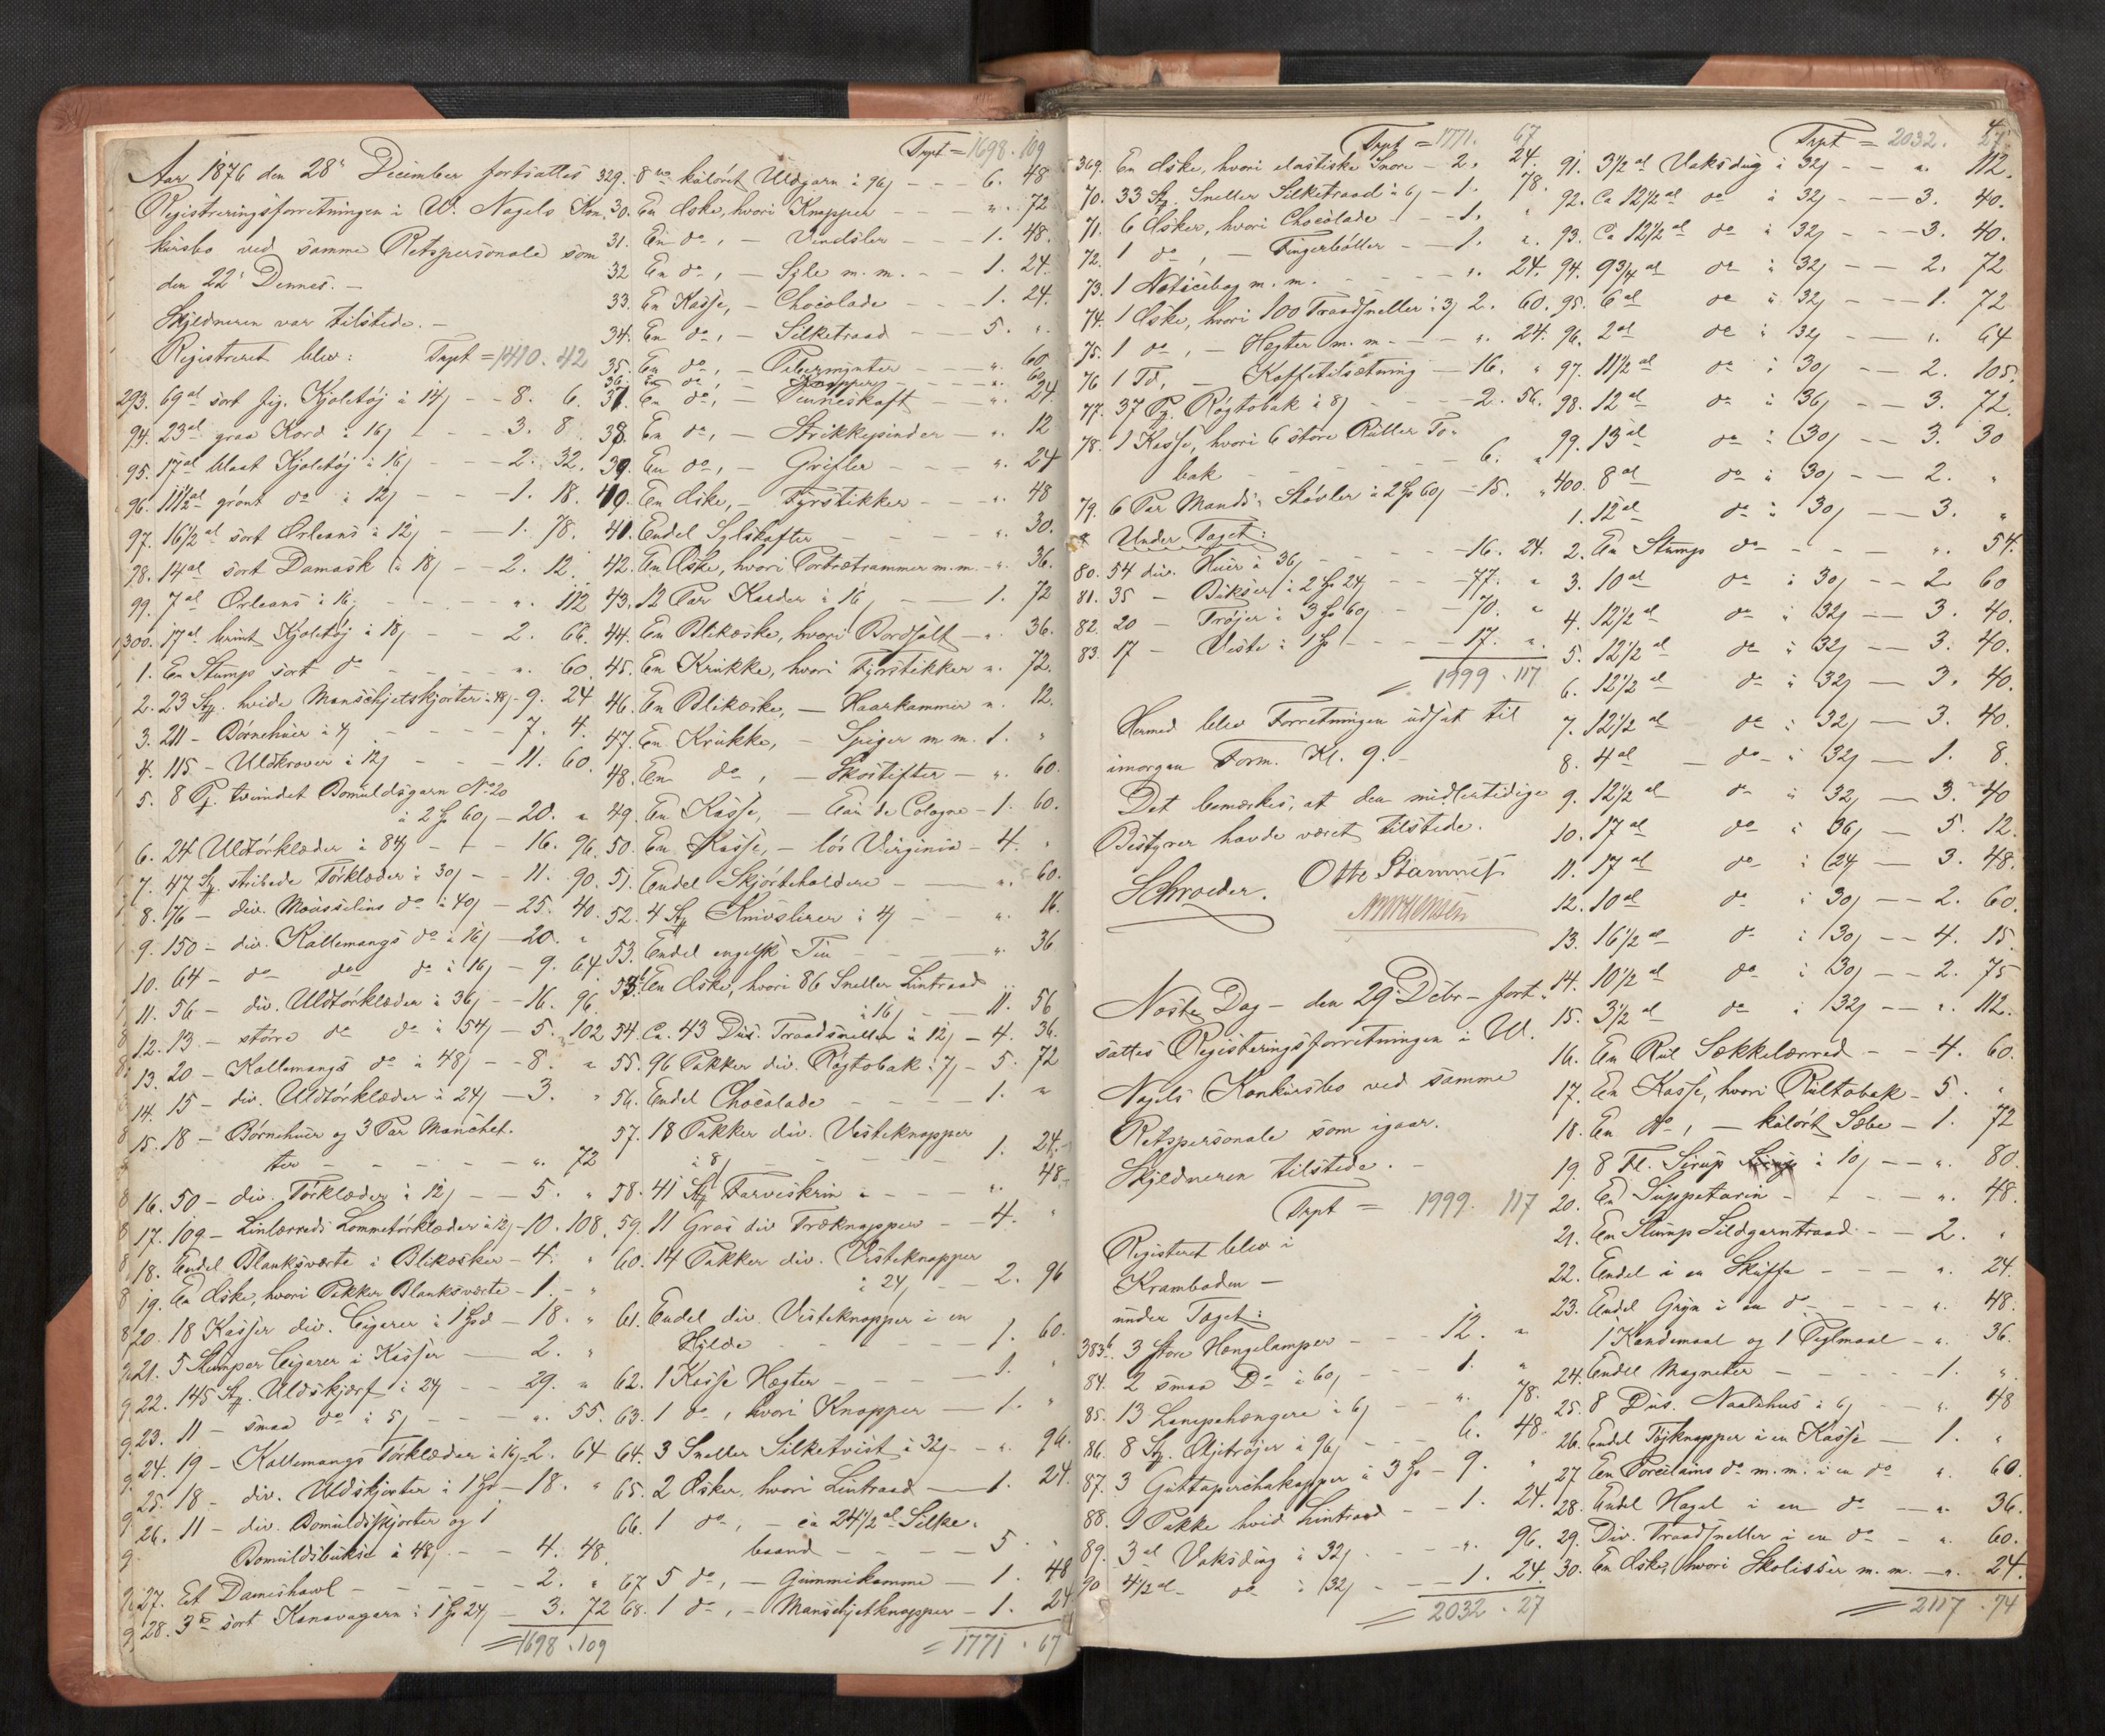 Aar 1876 den 28de December fortsattes
Registreringsforretningen i W. Nagels Kon-
kursbo ved samme Retspersonale som
den 22de Dennes. –
Skyldneren var tilstede. –
Registreret blev: Trpt = 1410. 42
293. 69 al sort fig. Kjoletøj à 14ȷ – – 8. 6.
94. 23 al graa Kord à 16ȷ – – – 3. 8.
95. 17 al blaat Kjoletøj à 16ȷ – – – 2. 32.
96. 11 1/2 al grønt do à 12ȷ – – – 1. 18.
97. 16 1/2 al sort Orleans à 12ȷ – – 1. 78.
98. 14 al sort Damask à 18ȷ – – 2. 12.
99. 7 al Orleans à 16ȷ – – – – ". 112
300. 17 al brunt Kjoletøj à 18ȷ – – 2. 66.
1. En Stump sort do – – – – ". 60
2. 23 Stk. hvide Manschjetskjorter à 48ȷ – 9. 24
3. 211 – Børnehuer à 4ȷ – – – – 7. 4.
4. 115 – Uldkraver à 12ȷ – – – 11. 60.
5. 8 Pȷ. tvundet Bomuldsgarn No 20
à 2 Spd 60ȷ – 20. "
6. 24 Uldtørklæder à 84ȷ – – – 16. 96.
7. 47 Stk. stribede Tørklæder à 30ȷ – – 11. 90.
8. 76 – div. Mousselins do à 40ȷ – 25. 40.
9. 150 – div. Kallemangs do à 16ȷ – 20. "
10. 64 – do do do à 16ȷ – 9. 64.
11. 56 – div. Uldtørklæder à 36ȷ – – 16. 96.
12. 13 – større do do à 54ȷ – 5. 102
13. 20 – Kallemangs do à 48ȷ – – 8. "
14. 15 – div. Uldtørklæder à 24ȷ – 3. "
15. 18 – Børnehuer og 3 Par Manchet-
ter – – – – – – ". 72
16. 50 – div. Tørklæder à 12ȷ – – 5. "
17. 109 – Linlærreds Lommetørklæder à 12ȷ – 10. 108.
18. Endel Blanksværte i Blikæsker – 4. "
19. En Æske, hvori Pakker Blanksværte – 1. "
20. 18 Kasser div. Cigarer à 1 Spd – 18. "
21. 5 Stumper Cigarer i Kasser – – 2. "
22. 145 Stk. Uldskjærf à 24ȷ – – 29. "
23. 11 – smaa do à 5ȷ – – – ". 55.
24. 19 – Kallemangs Tørklæder à 16ȷ – 2. 64
25. 18 – div. Uldskjorter à 1 Spd – 18. "
26. 11 – div. Bomuldsskjorter og 1
Bomuldsbukse à 48ȷ – – 4. 48.
27. Et Dameshawl – – – – – 2. "
28. 3 ℔ sort Kanavagarn à 1 Spd 24ȷ – 3. 72
= 1698. 109
Trpt = 1698. 109
329. 8 ℔ kulørt Uldgarn à 96ȷ – – – 6. 48
30. En Æske, hvori Knapper – – – – ". 72
31. En do, – Vindsler – – – 1. 48.
32 En do, – Syle m. m. – – 1. 24.
33. En Kasse, – Chocolade – – – 1. 24.
34. En do, – Silketraad – – 5. ".
35. En do, – Pebermynter – – – ". 60
36. En do, – Knapper – – – ". 60
37. En do, – Penneskaft – – ". 24.
38. En do, – Strikkepinder – – ". 12
39. En do, – Grifler – – – ". 24
40. En Æske, – Fyrstikker – – ". 48
41. Endel Sylskafter – – – – ". 30.
42. En Æske, hvori Portrætrammer m. m. – ". 36.
43. 12 Par Karder à 16ȷ – – 1. 72
44. En Blikæske, hvori Bordsalt – ". 36.
45. En Krukke, hvori Fyrstikker ". 72.
46. En Blikæske, – Haarkammer ". 12.
47. En Krukke, – Spiger m m. 1. "
48. En do, – Skostifter – ". 60.
49. En Kasse, – Eau de Cologne – 1. 60.
50. En Kasse, – løs Virginia – 4. "
51. Endel Skjorteholdere – – ". 60.
52. 4 Stk Knivslirer à 4ȷ – – ". 16.
53. Endel engelsk Tin – – – ". 36
53b. En Æske, hvori 86 Sneller Lintraad
à 16ȷ – – 11. 56
54. Ca. 43 Dus. Traadsneller à 12ȷ – 4. 36.
55. 96 Pakker div. Røgtobak à 7ȷ – 5. 72
56. Endel Chocolade – – – – 1. "
57. 18 Pakker div. Vesteknapper
à 8ȷ – – – – – 1. 24.
58. 41 Stk Farveskrin à – – – ". 48
59. 11 Gros div Træknapper – – 4. "
60. 14 Pakker div. Vesteknapper
à 24ȷ – – 2. 96
61. Endel div. Vesteknapper i en
Hylde – – – – – – 1. 60.
62. 1 Kasse Hægter – – – – 1. "
63. 1 do, hvori Knapper – – 1. "
64. 3 Sneller Silketvist à 32ȷ – – ". 96.
65. 2 Æsker, hvori Lintraad – – 1. 24.
66. 1 do, – ca 24 1/2 al Silke-
baand – – – – 5. "
67 5 do, – Gummikamme – 1. 48
68. 1 do, – Manschjetknapper – 1. 24
= 1771. 67
Trpt = 1771. 67
369. En Æske, hvori elastiske Snore – 2. 24.
70. 33 Stk. Sneller Silketraad à 6ȷ – 1. 78.
71. 6 Æsker, hvori Chocolade – – 1. "
72. 1 do, – Fingerbøller – – 1. ".
73. 1 Noticebog m. m. – – – – ". 24.
74. 1 Æske, hvori 100 Traadsneller à 3ȷ 2. 60.
75. 1 do, – Hegter m. m. – – ". 24.
76 1 Td, – Kaffetilsætning – 16. "
77. 37 Pȷ. Røgtobak à 8ȷ – – – 2. 56.
78. 1 Kasse, hvori 6 store Ruller To-
bak – – – – – – 6. "
79. 6 Par Mands-Støvler à 2 Spd 60ȷ – 15. "
Under Taget:
80. 54 div. Huer à 36ȷ – – – – 16. 24.
81. 35 – Bukser à 2 Spd 24ȷ – – 77. "
82. 20 – Trøjer à 3 Spd 60ȷ – – 70. "
83. 17 – Veste à 1 Spd – – – 17. ".
= 1999. 117
Hermed blev Forretningen udsat til
imorgen Form. Kl. 9. –
Det bemærkes, at den midlertidige
Bestyrer havde været tilstede.
Schroeder. Otto Stamnes
Næste Dag – den 29de Debr – fort-
sattes Registeringsforretningen i W.
Nagels Konkursbo ved samme
Retspersonale som igaar.
Skjeldneren tilstede. –
Trpt = 1999. 117
Registeret blev i
Kramboden –
under Taget:
383b. 3 store Hængelamper – – 12. "
84. 2 smaa Do à 60ȷ – – 1. "
85. 13 Lampehængere à 6ȷ – – ". 78.
86. 8 Stk. Oljetrøjer à 96ȷ – – – 6. 48.
87. 3 Guttaperchakapper à 3 Spd – 9. "
88. 1 Pakke hvid Lintraad – – 1. 24.
89. 3 al Voksdug à 32ȷ – – – ". 96.
90 4 1/2 al – do à 32ȷ – – – 1. 24.
= 2032. 27
Trpt = 2032. 27.
91. 3 1/2 al Voksdug à 32ȷ – – ". 112.
92. Ca 12 1/2 al do à 32ȷ – – – 3. 40.
93. Ca 12 1/2 al do à 32ȷ – – – 3. 40.
94. 9 3/4 al do à 32ȷ – – 2. 72
95. 6 al do à 32ȷ – – – 1. 72
96. 2 al do à 32ȷ – – ". 64
97. 11 1/2 al do à 30ȷ – – 2. 105.
98. 12 al do à 36ȷ – – 3. 72.
99. 13 al do à 30ȷ – – 3. 30
400. 8 al do à 30ȷ – – 2. "
1. 12 al do à 30ȷ – – 3. "
2. En Stump do – – – ". 54.
3. 10 al do à 30ȷ – – 2. 60
4. 12 1/2 al do à 32ȷ – – 3. 40.
5. 12 1/2 al do à 32ȷ – – 3. 40.
6. 12 1/2 al do à 32ȷ – – 3. 40.
7. 12 1/2 al do à 32ȷ – – 3. 40.
8. 4 al – do – à 32ȷ – – 1. 8.
9. 12 1/2 al do à 32ȷ – – 3. 40
10. 17 al do à 36ȷ – 5. 12.
11. 17 al do à 24 – 3. 48.
12. 10 al do à 30ȷ – – 2. 60.
13. 16 1/2 al do à 30ȷ – – 4. 15.
14. 10 1/2 al do à 30ȷ – – 2. 75
15. 3 1/2 al do à 32ȷ – – ". 112.
16. En Rul Sækkelærred – – 4. 60.
17. En Kasse, hvori Rultobak – 5. "
18. En do, – kulørt Sæbe – 1. 72
19. 8 Fl. Sirup à 10ȷ – – ". 80.
20. En Suppeterin – – – – ". 48.
21. En Stump Sildgarntraad – – 2. "
22. Endel i en Skuffe – – – ". 24.
23. Endel Gryn i en do – – – – ". 48.
1 Kandemaal og 1 Pæglmaal – ". 36.
24. Endel Magneter – – – – – 1. ".
25. 8 Dus. Naalehus à 6ȷ – – ". 48
26. Endel Tøjknapper i en Kasse – 1. "
27. En Porcelains do m. m. i en do ". 60.
28. Endel Hagel i en do – – ". 36.
29. Div. Traadsneller i en do – ". 60.
30. En Æske, hvori Skolisser m. m. – ". 24.
= 2117. 74